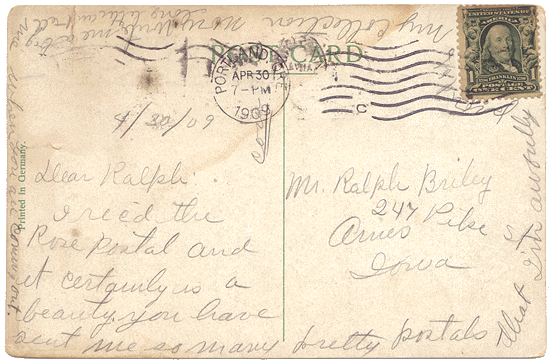 POST CARD
PORTLAND
APR 30
7-PM
1909
UNITED STATES OF AMERICA
1 FRANKLIN 1
POSTAGE
ONE CENT
C
4/30/09
Dear Ralph.
I rec'd the
Rose postal and
it certainly is a
beauty. you have
sent me so many pretty postals
that
awfully
my collection
Mr. Ralph Briley
247 Pike
Ames
Iowa
Printed in Germany.
when you are coming out.